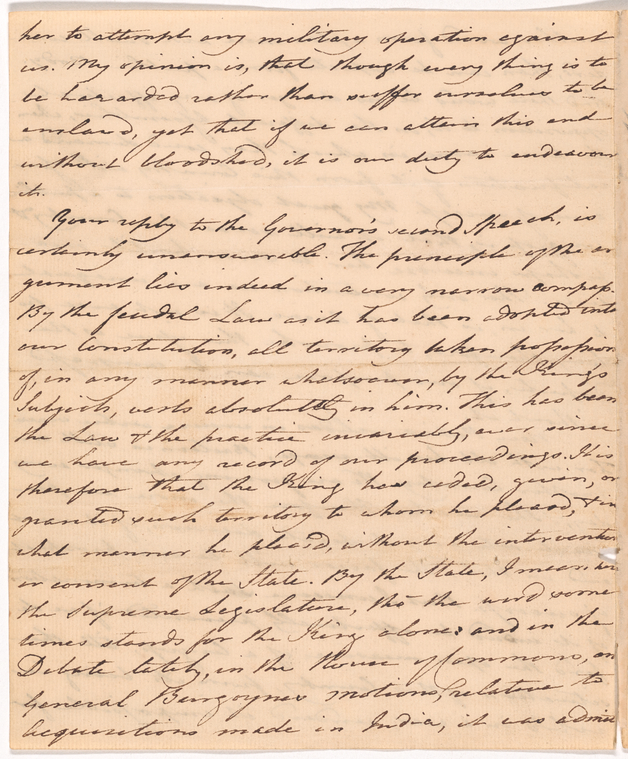 her to attempt any military operation against
us. My opinion is, that though every thing is to
be hazarded rather than suffer ourselves to be
enslav'd, yet that if we can attain this end
without bloodshed, it is our duty to endeavour
it.
Your reply to the Governor's second Speech, is
certainly unanswerable. The principle of the ar
gument lies indeed in a very narrow compass.
By the feudal Law as it has been adopted into
our Constitution, all territory taken possession
of, in any manner whatsoever, by the King's
Subjects, vests absolutely in him. This has been
the Law & the practice invariably, ever since
we have any record of our proceedings. It is
therefore that the King has ceded, given, or
granted such territory to whom he pleas'd, & in
what manner he pleas'd, without the intervention
or consent of the State. By the State, I mean
the Supreme Legislature, tho' the word some
times stands for the King alone: and in the
Debate lately, in the House of Commons, on
General Burgoynes motions, relative to
Acquisitions made in India, it was admit